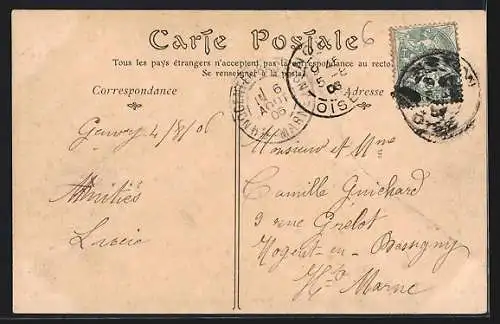 6
Carte Postale
Tous les pays étrangers n'acceptent pas la correspondance au recto
Se renseigner à la poste
Correspondance
Adresse
6
AOUT
06
5 - 8
06
OISE
4/8/06
Amitiés
Lucie
Monsieur et Mme
Camille Guichard
9 rue Grelot
Nogent-en-Bassigny
Hte Marne